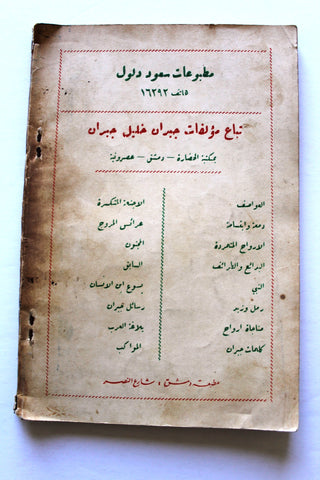 مطبوعات سعود دلول
هاتف ١٦٢٩٢
تباع مؤلفات جبران خليل جبران
بمكتبة الحضارة – دمشق – عصرونية
العواصف
دمعة وابتسامة
الارواح المتمردة
البدائع والطرائف
النبي
رمل وزبد
مناجاة ارواح
كلمات جبران
الاجنحة المتكسرة
عرائس المروج
المجنون
السابق
يسوع ابن الانسان
رسائل جبران
بلاغة العرب
المواكب
مطبعة دمشق ، شارع النصر